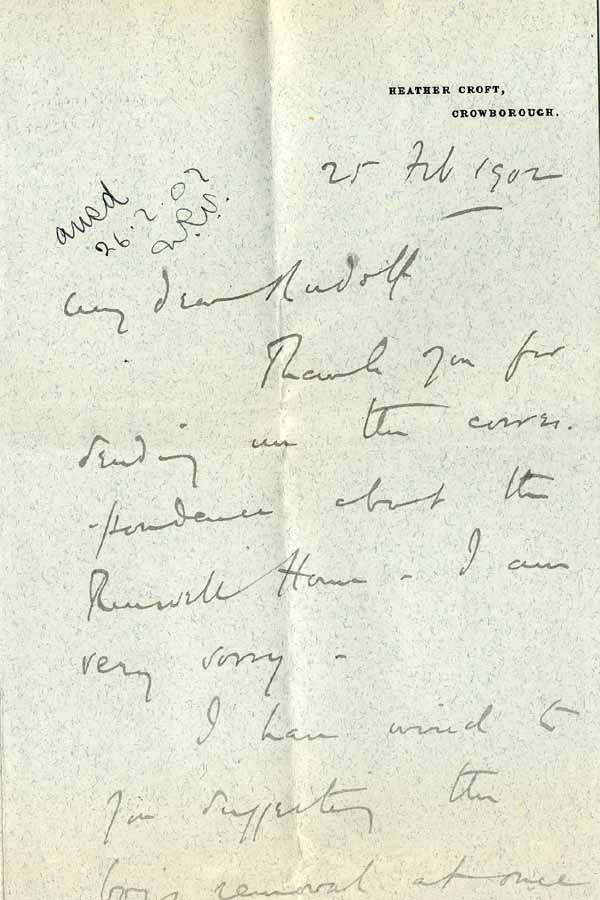 HEATHER CROFT,
CROWBOROUGH.
25 Feb 1902
ansd
26.2.02
My dear Rudolf
Thank you for
sending me the corres.
-pondence about the
Home - I am
very sorry -
I have wired to
you suggesting the
boy's removal at once